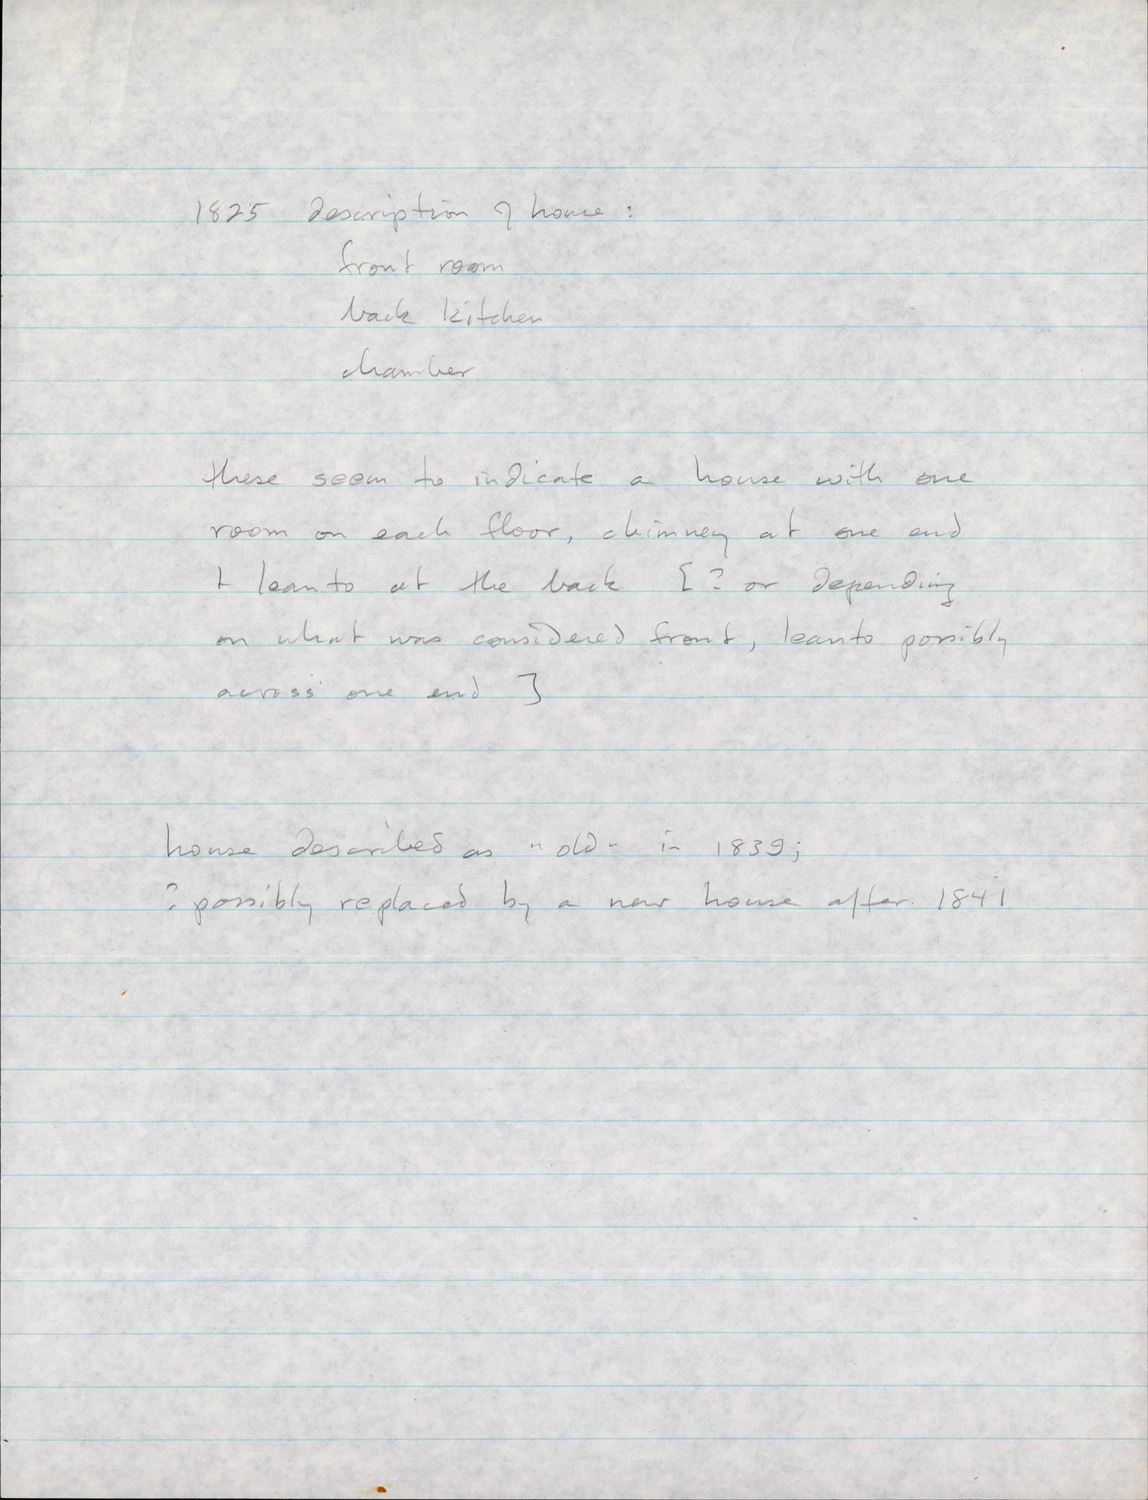 1825 description of house :
front room
back kitchen
chamber
these seem to indicate a house with one
room on each floor, chimney at one end
+ leanto at the back [ ? or depending
on what was considered front, leanto possibly
across one end ]
house described as "old" in 1839;
? possibly replaced by a new house after 1841